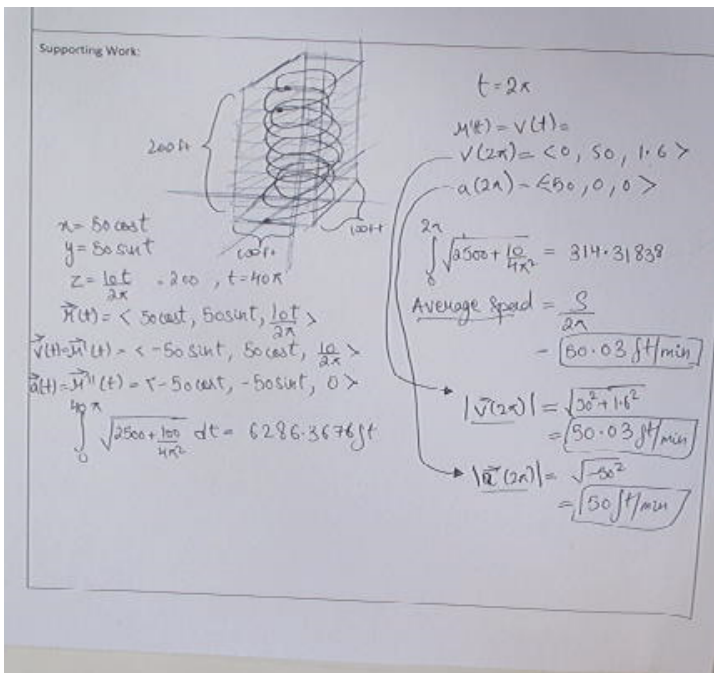 Supporting Work:
200 ft
100 ft
100 ft
x = 50 cost
y = 50 sint
z = 10t/2π = 200, t = 40π
r⃗(t) = < 50cost, 50sint, 10t/2π >
v⃗(t) = r⃗'(t) = < -50 sint, 50 cost, 10/2π >
a⃗(t) = r⃗''(t) = < -50 cost, -50 sint, 0 >
∫₀^40π √(2500 + 100/4π²) dt = 6286.3676 ft
t = 2π
r'(t) = v(t) =
v(2π) = <0, 50, 1.6>
a(2π) = <-50, 0, 0>
∫₀^2π √(2500 + 10/4π²) = 314.31838
Average Speed = S/2π
= 50.03 ft/min
|v⃗(2π)| = √(50² + 1.6²)
= 50.03 ft/min
|a⃗(2π)| = √(-50²)
= 50 ft/min